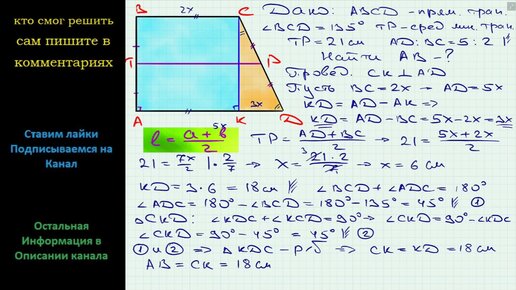 кто смог решить
сам пишите в
комментариях
Ставим лайки
Подписываемся на
Канал
Остальная
Информация в
Описании канала
B 2x C
T P
A K 3x D
5x
Дано: ABCD - прям. трап.
∠BCD = 135° TP - сред. лин. трап.
TP = 21 см AD : BC = 5 : 2
Найти AB - ?
Провед. CK ⊥ AD
Пусть BC = 2x → AD = 5x
KD = AD - AK =>
KD = AD - BC = 5x - 2x = 3x
ℓ = (a + b)/2 TP = (AD + BC)/2 → 21 = (5x + 2x)/2
21 = 7x/2 | · 2/7 → x = (21 · 2)/7 → x = 6 см
KD = 3 · 6 = 18 см ∠BCD + ∠ADC = 180°
∠ADC = 180° - ∠BCD = 180° - 135° = 45° ①
△CKD: ∠KDC + ∠KCD = 90° → ∠CKD = 90° - ∠KDC
∠CKD = 90° - 45° = 45° ②
① и ② => △KDC - р/б → CK = KD = 18 см
AB = CK = 18 см